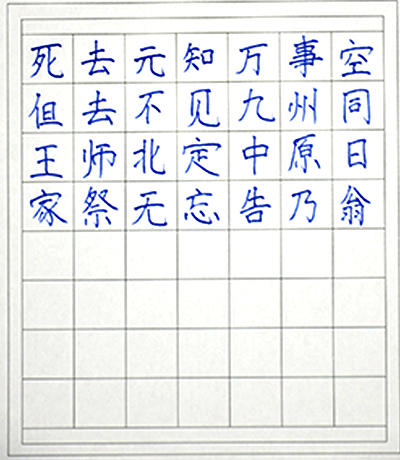 死去元知万事空
但去不见九州同
王师北定中原日
家祭无忘告乃翁